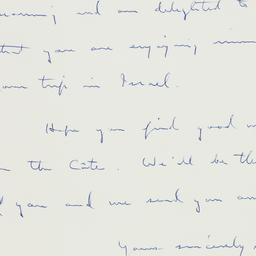 and am delighted to
that you are enjoying
your trip in Israel.
Hope you find good
in the Cote. We'll be
you and me send you
Yours sincerely